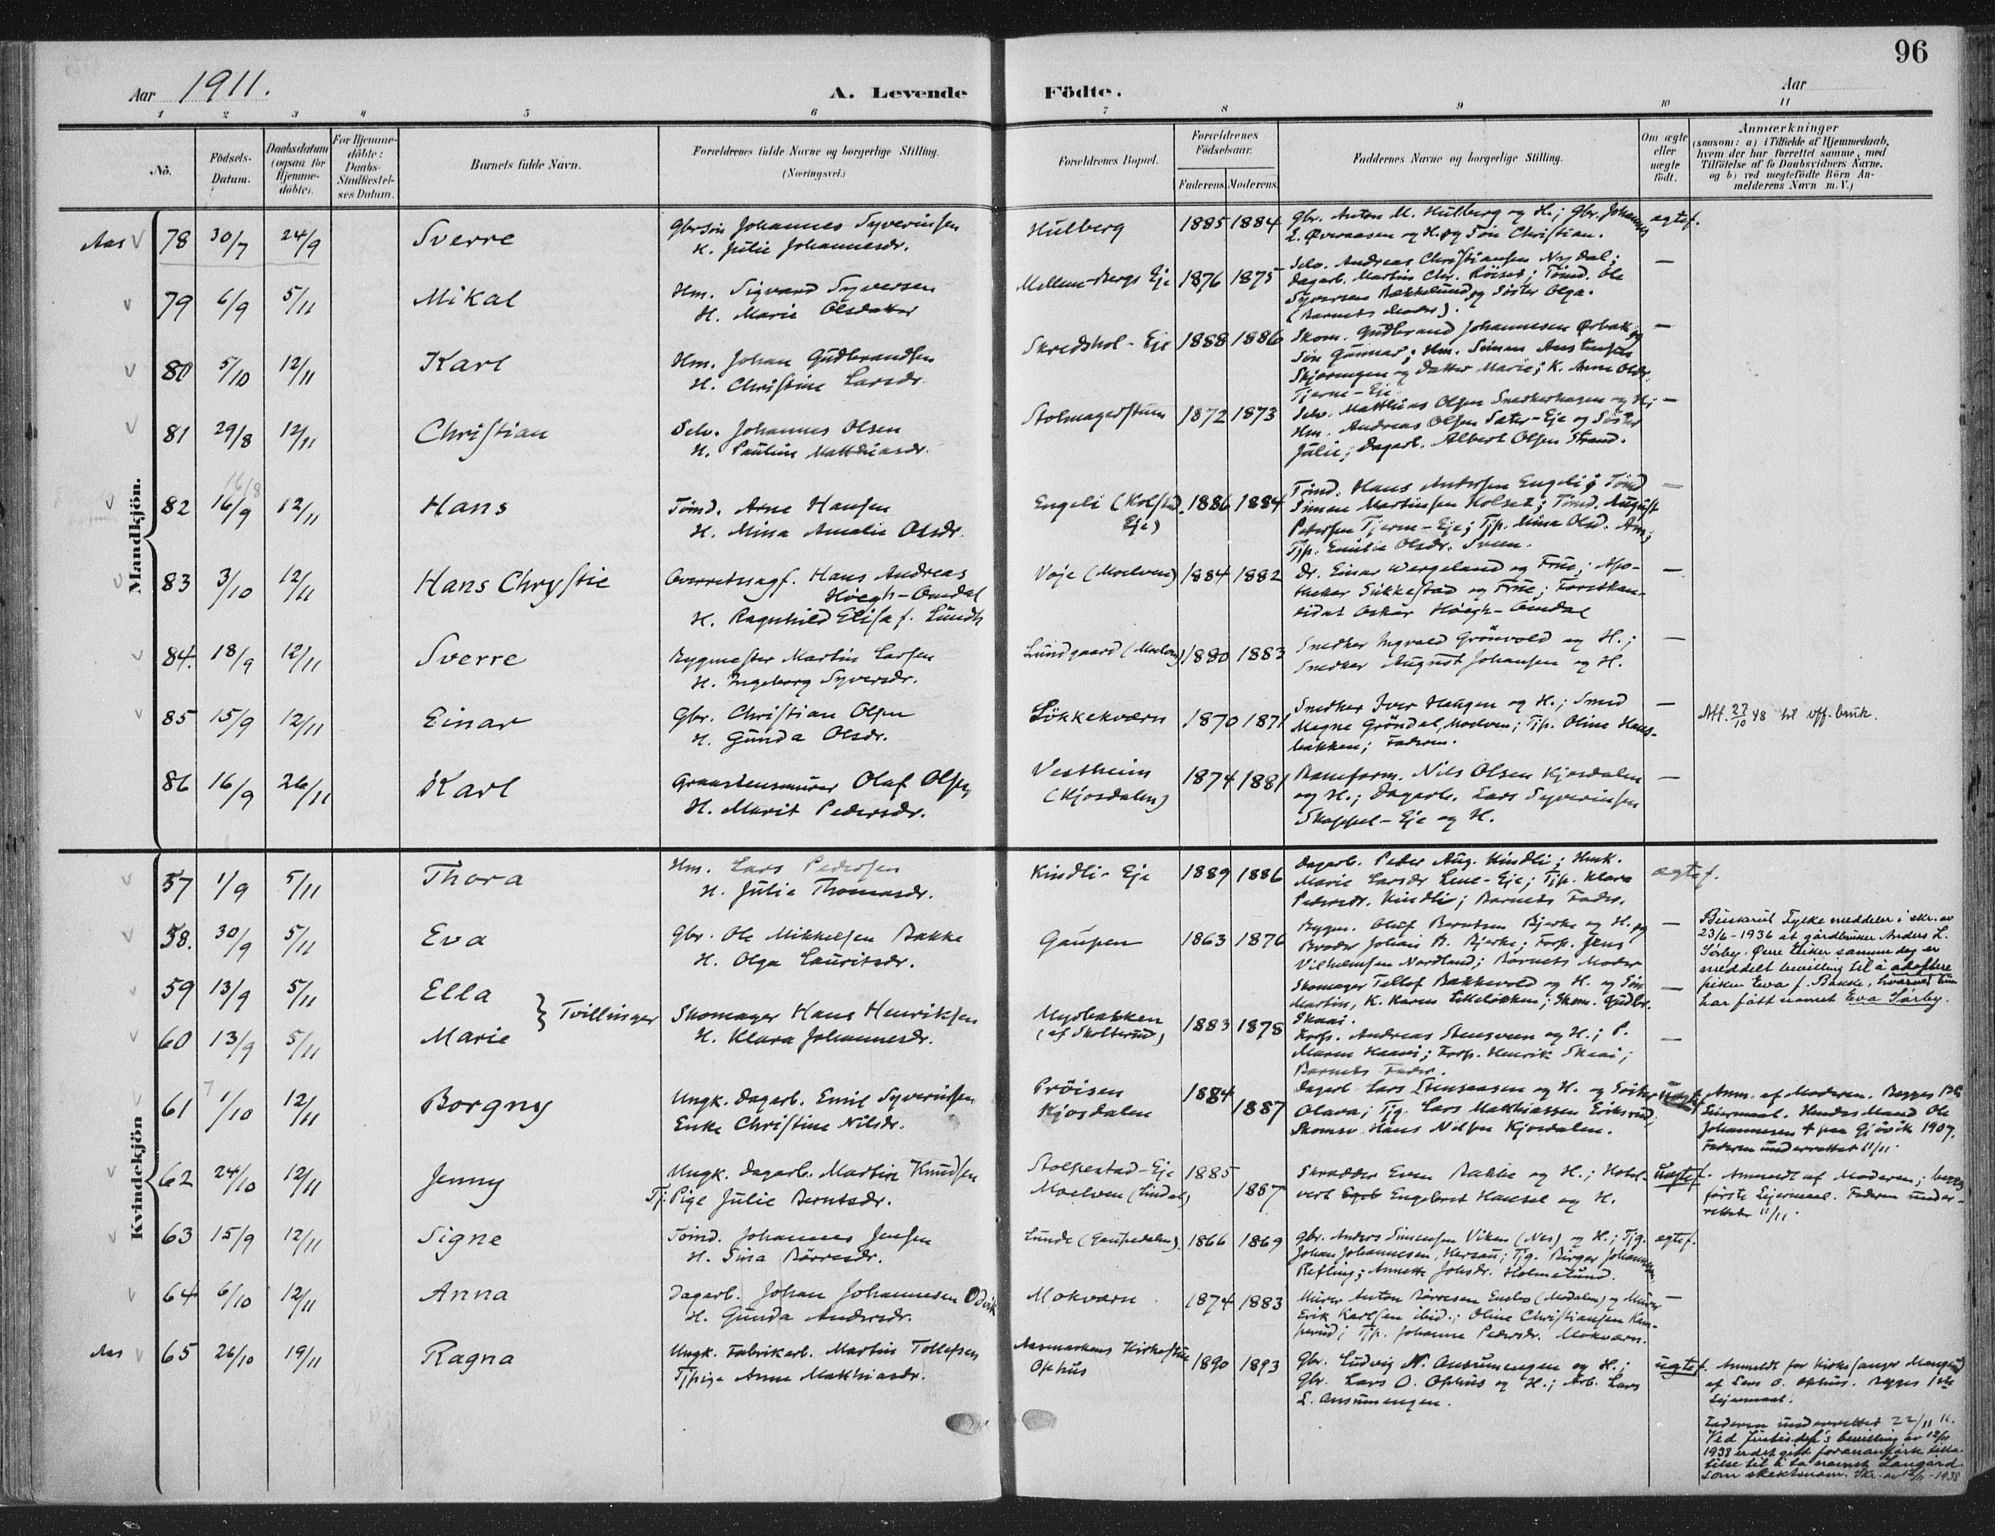 96
Aar 1911.
A. Levende Födte.
Aar
1 2 3 4 5 6 7 8 9 10 11
No.
Födsels-Datum.
Daabsdatum (ogsaa for Hjemme-döbte).
For Hjemme-döbte: Daabs-Stadfæstel-ses Datum.
Barnets fulde Navn.
Forældrenes fulde Navne og borgerlige Stilling. (Næringsvei.)
Forældrenes Bopæl.
Forældrenes Födselsaar.
Faderens. Moderens.
Faddernes Navne og borgerlige Stilling.
Om ægte eller uægte födt.
Anmærkninger
(saasom: a) i Tilfælde af Hjemmedaab,
hvem der har forrettet samme, med
Tilföielse af to Daabsvidners Navne,
og b) ved uægtefödte Börn An-
melderens Navn m. V.)
Mandkjön.
Aas 78 30/7 24/9 Sverre
Gbrsøn Johannes Syverinsen
K. Julie Johannesdr.
Hulberg 1885 1884
Gbr. Anton M. Hulberg og H.; Gbr. Johannes
E. Øveraasen og H. og Søn Christian.
ægtef.
79 6/9 5/11 Mikal
Hm. Sigvard Syversen
H. Marie Olsdatter
Mellem-Bergs Eje 1876 1875
Selv. Andreas Christiansen Nydal;
Dagarb. Martin Chr. Röiset; Tömd. Ole
Syversen Bækkelund og Söster Olga.
(Barnets Moder).
—
80 5/10 12/11 Karl
Hm. Johan Gudbrandsen
H. Christine Larsdr.
Skredshol-Eje 1888 1886
Skom. Gudbrand Johannesen Ørbak og
Søn Gunnar; Hm. Simen
Skjæringen og Datter Marie; K. Anne Olsdr.
Tjerne-Eje.
—
81 29/8 12/11 Christian
Selv. Johannes Olsen
H. Pauline Matthiasdr.
Stolmagerstuen 1872 1873
Selv. Matthias Olsen Snekkerhagen og H.;
Hm. Andreas Olsen Sater-Eje og Söster
Julie; Dagarb. Albert Olsen Strand.
—
16/8
82 16/9 12/11 Hans
Tömd. Arne Hansen
H. Mina Amalie Olsdr.
Engeli (Kolstad Eje) 1886 1884
Tömd. Hans Andersen Engeli; Tömd
Simen Martinsen Holset; Tömd. August
Petersen Tjerne-Eje; Tjp. Mina Olsd. Aas;
Tjp. Emilie Olsdr. Sveen.
—
83 3/10 12/11 Hans Chrystie
Overretssagf. Hans Andreas
Høegh-Omdal
H. Ragnhild Elisa f. Lundh
Voje (Moelven) 1884 1882
Dr. Einar Wergeland og Frue; Apo-
theker Sikkestad og Frue; Forstkan-
didat Oskar Høegh-Omdal
—
84. 18/9 12/11 Sverre
Bygmester Martin Larsen
H. Ingeborg Syversdr.
Lundgaard (Moelven) 1880 1883
Snedker Ingvald Grönvold og H.;
Snedker August Johansen og H.
—
85 15/9 12/11 Einar
Gbr. Christian Olsen
H. Gunda Olsdr.
Løkkekværn 1870 1871
Snedker Iver Haugen og H.; Smed
Magne Gröndal, Moelven; Tjp. Oline Haus-
bakken; Faderen.
—
Att. 27/10 48 til off. bruk.
86 16/9 26/11 Karl
Graastensmurer Olaf Olsen
H. Marit Pedersdr.
Vestheim
(Kjosdalen) 1874 1881
Baneform. Nils Olsen Kjosdalen
og H.; Dagarb. Lars Syverinsen
Skappel-Eje og H.
—
Kvindekjön
57 1/9 5/11 Thora
Hm. Lars Pedersen
H. Julie Thomasdr.
Kindli-Eje 1889 1886
Dagarb. Peder Aug. Kindli; Husk.
Marie Larsdr Lene-Eje; Tjp. Klara
Pedersdr. Kindli; Barnets Fader.
ægtef.
58. 30/9 5/11 Eva
Gbr. Ole Mikkelsen Bakke
H. Olga Lauritsdr.
Gaupen 1863 1876
Bygm. Oluf Berntsen Bjerke og H. og
Broder Johan B. Bjerke; Forp. Jens
Vilhelmsen Nordlund; Barnets Moder
—
Buskerud Fylke meddeler i skr. av
23/6-1936 at gårdbruker Anders L.
Sørby, Øvre Eiker samme dag er
meddelt bevilling til å adoptere
piken Eva f. Bakke,
har fått navnet Eva Sørby.
59 13/9 5/11 Ella
60 13/9 5/11 Marie
} Tvillinger
Skomager Hans Henriksen
H. Klara Johannesdr.
Myrbakken
(af Skolterud) 1883 1878
Skomager Tollef Bakkevold og H. og Søn
Martin, K. Karen Lilleløkken; Skom. Gudbr.
Skaai.
—
Forp. Andreas Stensveen og H.; P.
Maren Haavi; Forp. Henrik Skaai;
Barnets Fader.
—
61 1/10 12/11 Borgny
Ungk. Dagarb. Emil Syverinsen
Enke Christine Nilsdr.
Pröisen
Kjosdalen 1884 1887
Dagarb Lars Svensaasen og H. og Söster
Olava; Tjg. Lars Matthiassen Eriksrud;
Skomsv. Hans Nilsen Kjosdalen.
uægtef.
Anm. af Moderen. Begges 1ste
Leiermaal. Hendes Mand Ole
Johannesen † paa Gjövik 1907.
Faderen underrettet 11/11.
62 24/10 12/11 Jenny
Ungk. Dagarb. Martin Knudsen
Tj. Pige Julie Berntsdr.
Stolpestad-Eje
Moelven (Lindal) 1885 1887
Skrædder Even Bakke og H.; Hotel-
vert Engebret Hansel og H.
uægtef.
Anmeldt af Moderen; begges
første Leiermaal. Faderen under-
rettet 11/11.
63 15/9 12/11 Signe
Tömd. Johannes Jensen
H. Sina Börresdr.
Lunde (Gaupedalen). 1866 1869
Gbr. Anders Simensen Viken (Nes) og H.; Tjg.
Johan Johannesen, Hersau; Tjg. Birger Johannesen
Refling; Annette Johsdr. Holmelund.
ægtef.
64 6/10 12/11 Anna
Dagarb. Johan Johannesen Odvik
H. Gunda Andersdr.
Mokværn 1874 1883
Murer Anton Börresen Enebo (Modalen) og Murer
Erik Karlsen ibid.; Oline Christiansen Kam-
perud; Tjp. Johanne Pedersdr. Mokværn.
—
Aas 65 26/10 19/11 Ragna
Ungk. Fabrikarb. Martin Tollefsen
Tjpige Anna Matthiasdr.
Aasmarkens Kirkestue
Ophus 1890 1893
Gbr. Ludvig N. Ansumengen og H.;
Gbr. Lars O. Ophus og H.; Arb. Lars
L. Ansumengen.
uægtef.
Anmeldt for Kirkesanger Mengshol
af Lars O. Ophus. Begges 1ste
Leiermaal.
Faderen underrettet 22/11 11.
Ved Justisdep's bevilling av 12/11
1938 er det gitt forannførte tilla-
telse til å ta navnet Langård
som slektsnavn. Skr. av 12/11-1938